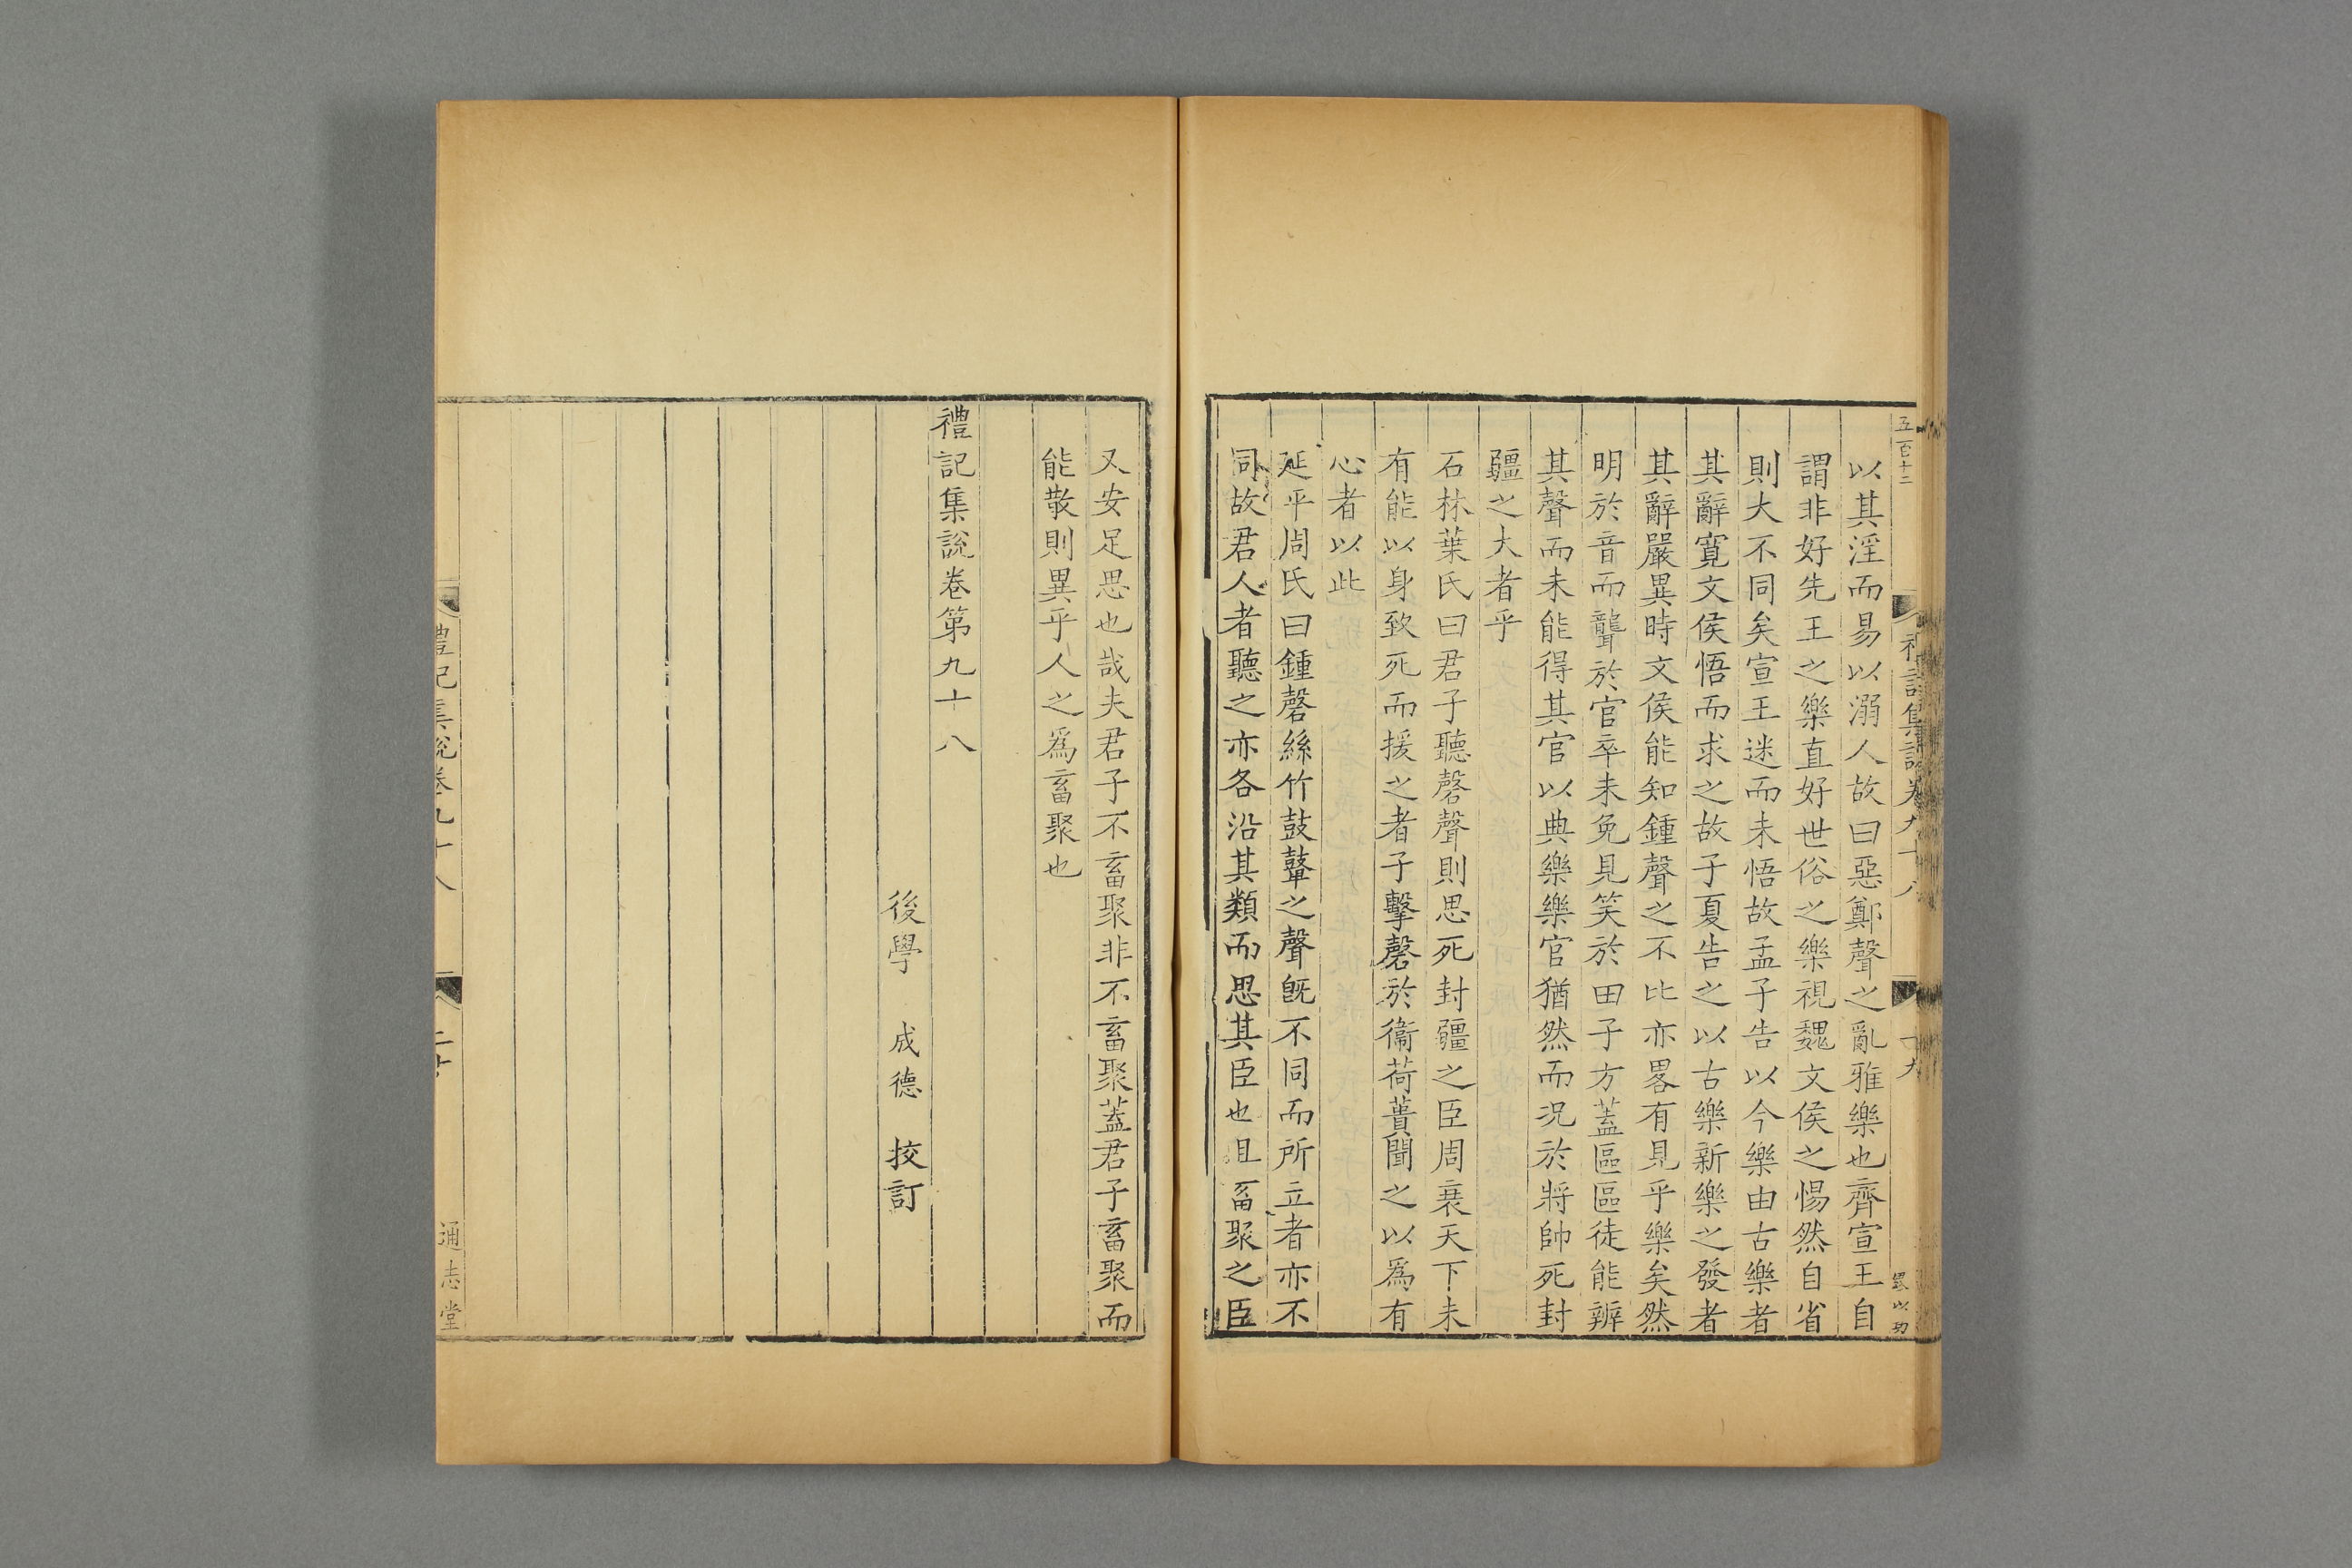 五百十二
禮記集說卷九十八
十九
以其淫而易以溺人故曰惡鄭聲之亂雅樂也齊宣王自
謂非好先王之樂直好世俗之樂視魏文侯之惕然自省
則大不同矣宣王迷而未悟故孟子告以今樂由古樂者
其辭寛文侯悟而求之故子夏告之以古樂新樂之發者
其辭嚴異時文侯能知鍾聲之不比亦畧有見乎樂矣然
明於音而聾於官卒未免見笑於田子方蓋區區徒能辨
其聲而未能得其官以典樂樂官猶然而况於將帥死封
疆之大者乎
石林葉氏曰君子聽磬聲則思死封疆之臣周衰天下未
有能以身致死而援之者子擊磬於衞荷蕢聞之以爲有
心者以此
延平周氏曰鍾磬絲竹鼓鼙之聲旣不同而所立者亦不
同故君人者聽之亦各沿其類而思其臣也且畜聚之臣
又安足思也哉夫君子不畜聚非不畜聚蓋君子畜聚而
能散則異乎人之爲畜聚也
禮記集說卷第九十八
後學 成德 挍訂
禮記集說卷九十八
通志堂